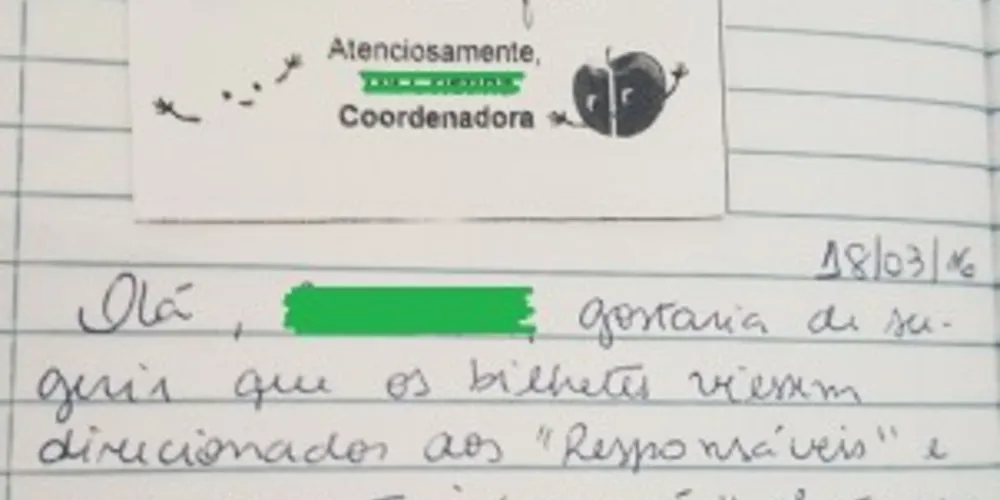 Atenciosamente,
Coordenadora
18/03/16
Olá, , gostaria de su-
gerir que os bilhetes viessem
direcionados aos "Responsáveis" e